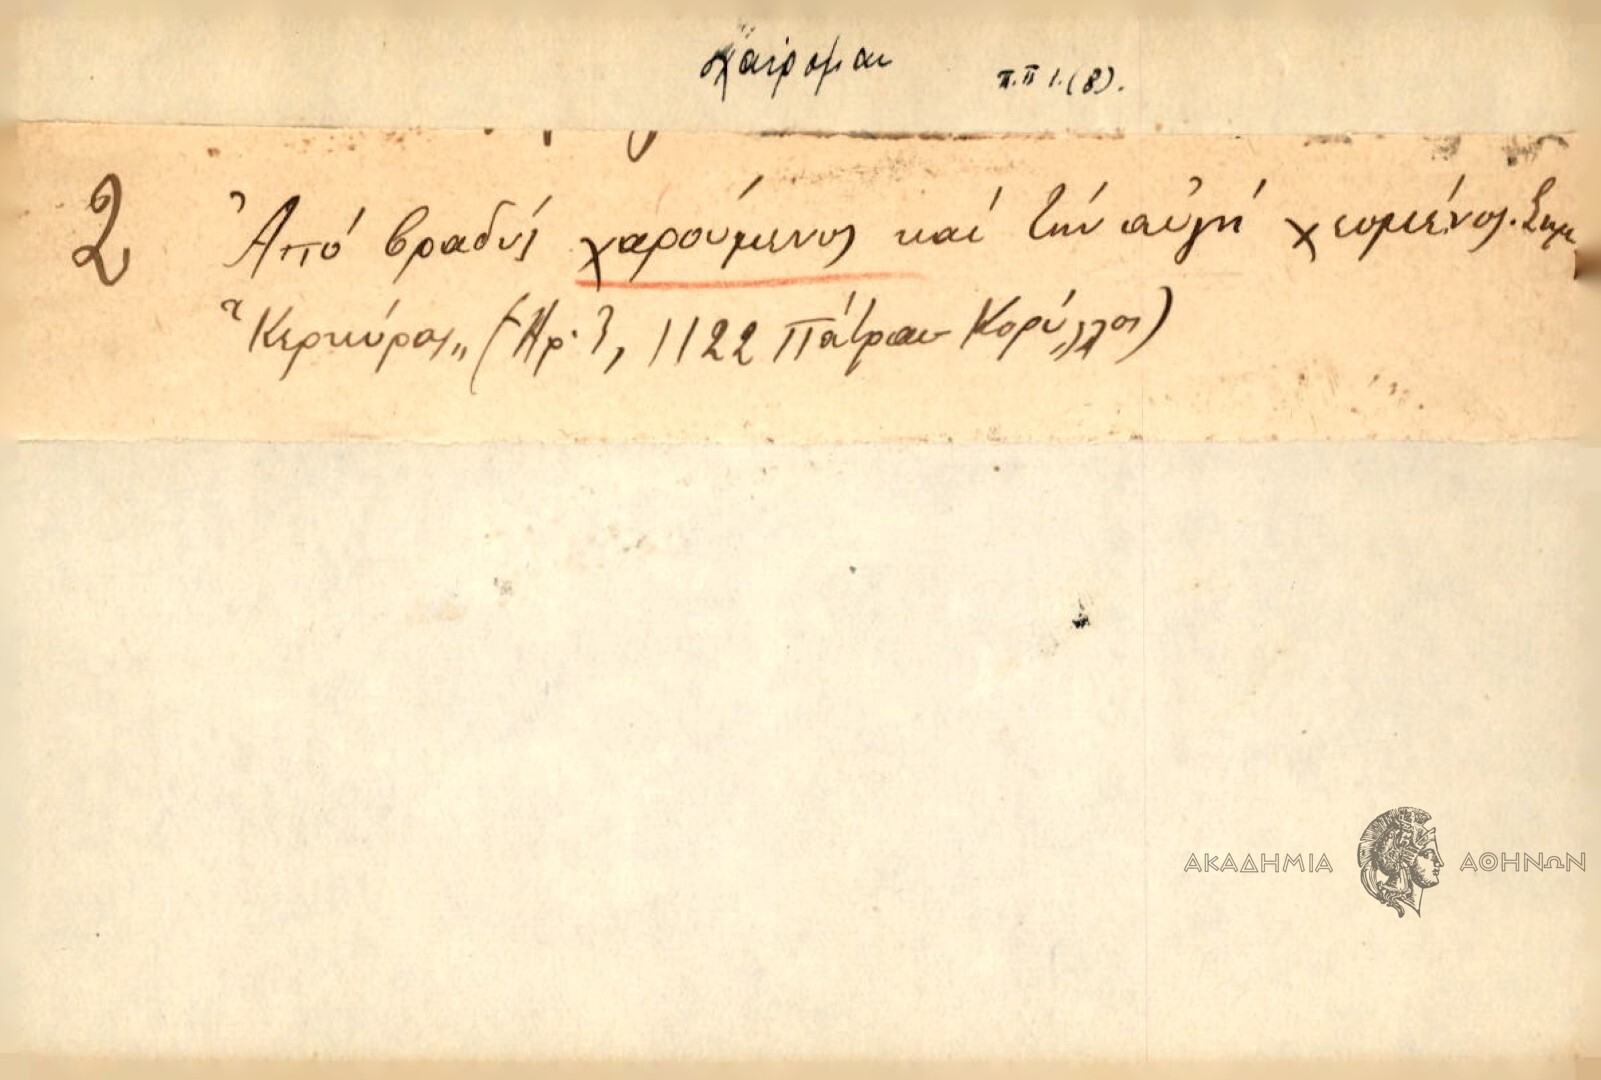 χαίρομαι
π.π 1.(8).
2 Ἀπό βραδύς χαρούμενος καί τήν αὐγή χεσμένος. Σημ
"Κερκύρας" (Ἀρ. 3, 1122 Πάτραι Κορύλλος)
ΑΚΑΔΗΜΙΑ ΑΘΗΝΩΝ